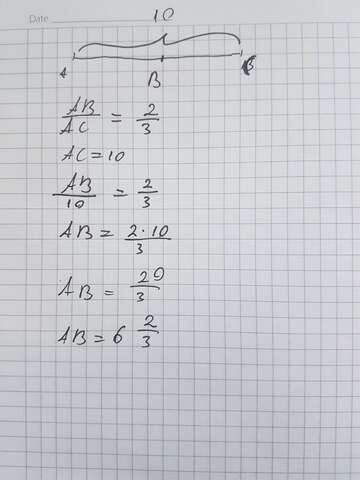 Date
10
A B
B
AB/AC = 2/3
AC = 10
AB/10 = 2/3
AB = 2·10/3
AB = 20/3
AB = 6 2/3